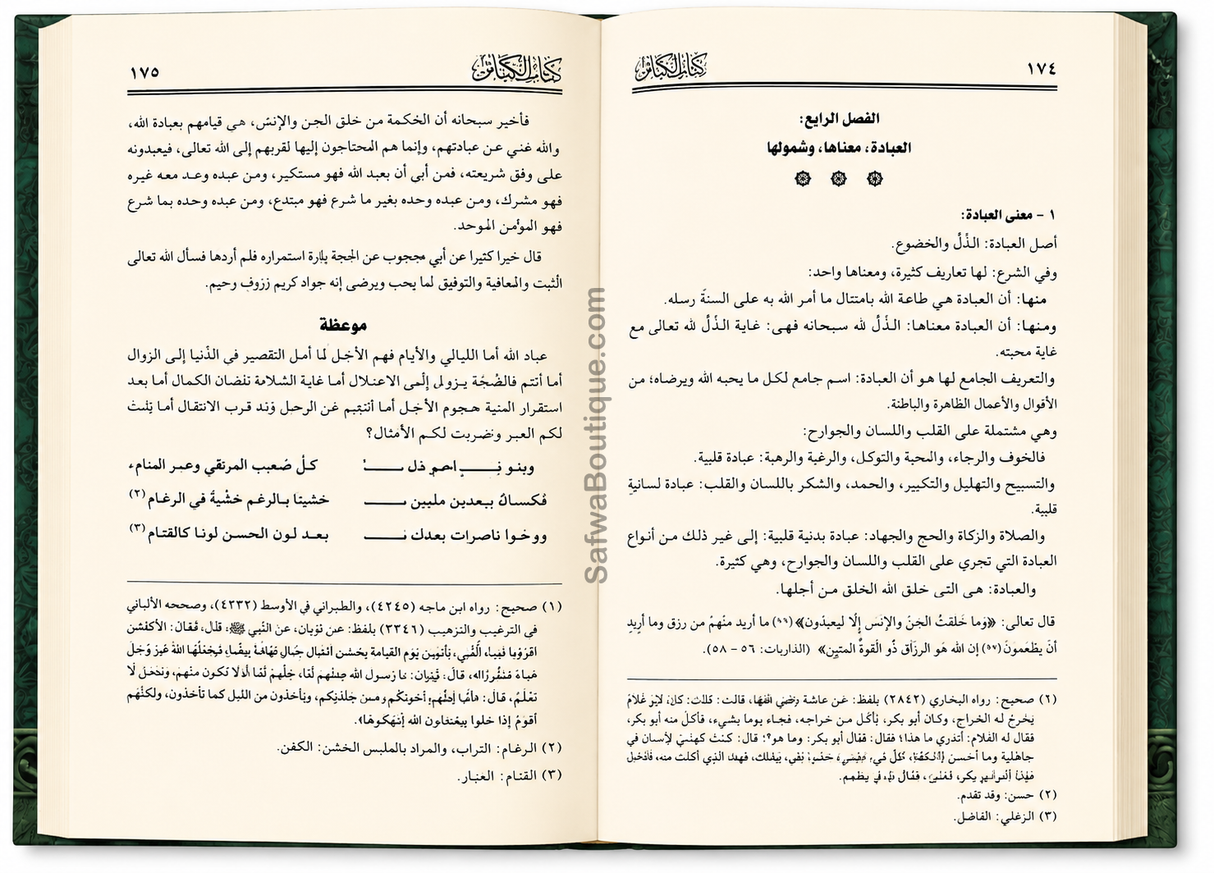 ١٧٤
كتاب الكبائر
الفصل الرابع:
العبادة، معناها، وشمولها
١ - معنى العبادة:
أصل العبادة: الذُلُ والخضوع.
وفي الشرع: لها تعاريف كثيرة، ومعناها واحد:
منها: أن العبادة هي طاعة الله بامتثال ما أمر الله به على السنةَ رسله.
ومنها: أن العبادة معناها: الذُلُ لله سبحانه فهى: غاية الذُلُ لله تعالى مع
غاية محبته.
والتعريف الجامع لها هو أن العبادة: اسم جامع لكل ما يحبه الله ويرضاه؛ من
الأقوال والأعمال الظاهرة والباطنة.
وهي مشتملة على القلب واللسان والجوارح:
فالخوف والرجاء، والمحبة والتوكل، والرغبة والرهبة: عبادة قلبية.
والتسبيح والتهليل والتكبير، والحمد، والشكر باللسان والقلب: عبادة لسانية
قلبية.
والصلاة والزكاة والحج والجهاد: عبادة بدنية قلبية: إلى غير ذلك من أنواع
العبادة التي تجري على القلب واللسان والجوارح، وهي كثيرة.
والعبادة: هى التى خلق الله الخلق من أجلها.
قال تعالى: «وَما خَلَقتُ الجَنْ والإنسَ إلَّا ليعبدُون» ما أريد منْهُمْ من رزق وما أريدِ
إن الله هو الرزّاق ذُو القوةُ المتين» (الذاريات: ٥٦ - ٥٨).
صحيح: رواه البخاري (٢٨٤٢) بلفظ: عن عاشة قالت: كان
يُخرجُ له الخراج، وكان أبو بكر، يأكل من خراجه، فجاء يوما بشيء، فأكل منه أبو بكر،
فقال له الغلام: أتدري ما هذا؛ فقال: فقال أبو بكر: وما هو؟؛ قال: كنتُ في
جاهلية وما أحسن الذي أكلت منه،
(٢) حسن: وقد تقدم.
(٣) الزغلي: الفاضل.
١٧٥
كتاب الكبائر
فأخير سبحانه أن الحكمة من خلق الجن والإنس، هي قيامهم بعبادة الله،
والله غني عن عبادتهم، وإنما هم المحتاجون إليها لقربهم إلى الله تعالى، فيعبدونه
على وفق شريعته، فمن أبى أن يعبد الله فهو مستكبر، ومن عبده وعد معه غيره
فهو مشرك، ومن عبده وحده بغير ما شرع فهو مبتدع، ومن عبده وحده بما شرع
فهو المؤمن الموحد.
قال خيرا كثيرا عن أبي عن استمراره فلم أردها فسأل الله تعالى
والمعافية والتوفيق لما يحب ويرضى إنه جواد كريم رحيم.
موعظة
عباد الله أما الليالي والأيام فهم الأجل لما أمل التقصير في الدُنيا إلى الزوال
أما أنتم أما غاية السلامة نقصان الكمال أما بعد
استقرار المنية هجوم الأجل أما قرب الانتقال أما
لكم العبر وضربت لكم الأمثال؟
وبنو ذل كلُ صَعيب المرتقي وعبر المنام
خشيتا بالرغم خشْيةً في الرغام (٢)
ناصرات بعدك بعد لون الحسن لونا كالقتام (٣)
(١) صحيح: رواه ابن ماجه (٤٢٤٥)، والطبراني في الأوسط (٤٢٣٢)، وصححه الألباني
في الترغيب والترهيب (٣٣٤٦) بلفظ: عن ثوبان، عن النبي ﷺ، قال،
يوم القيامة
ألا تكون منهم،
قال: ومن ويأخذون من الليل كما تأخذون، ولكنَّهم
أقومُ إذا خلوا
(٢) الرغام: التراب، والمراد بالملبس الخشن: الكفن.
(٣) القتام: الغبار.
SafwaBoutique.com